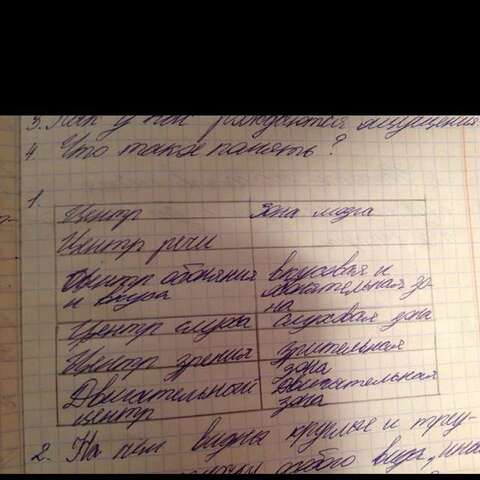 3. Как у
4. Что такое память?
1.
Центр
Зона мозга
Центр речи
Центр обоняния
и вкуса
вкусовая и
обонятельная зо-
на
Центр слуха
слуховая зона
Центр зрения
зрительная
зона
Двигательный
центр
Двигательная
зона
2. На нём видны круглые и треу-
особого вида,